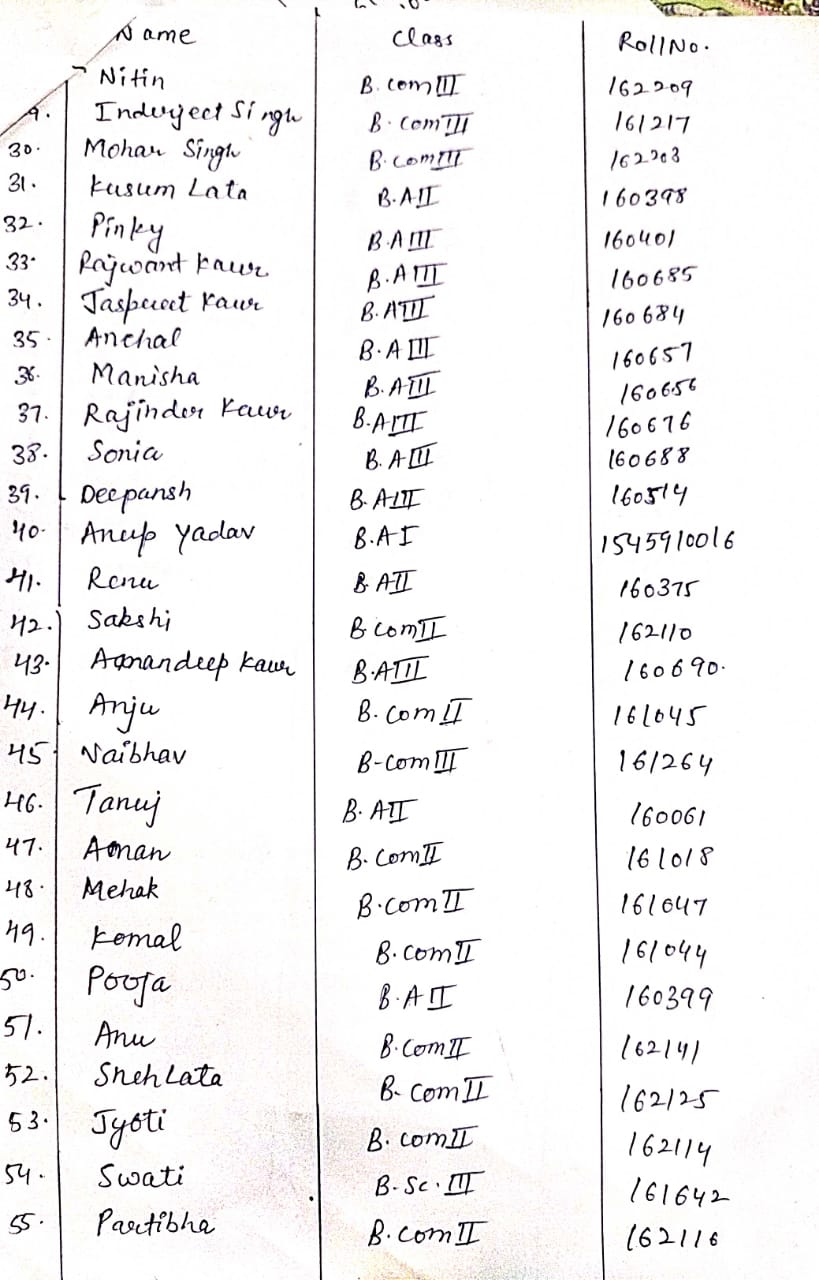 Name Class RollNo.
Nitin B.com III 162209
9. Inderjeet Singh B.com III 161217
30. Mohan Singh B.com III 162203
31. Kusum Lata B.A II 160398
32. Pinky B.A III 160401
33. Rajwant Kaur B.A III 160685
34. Jaspreet Kaur B.A III 160684
35. Anchal B.A III 160657
36. Manisha B.A III 160656
37. Rajinder Kaur B.A III 160676
38. Sonia B.A III 160688
39. Deepansh B.A III 160514
40. Anup Yadav B.A I 1545910016
41. Renu B.A II 160375
42. Sakshi B com II 162110
43. Amandeep Kaur B.A III 160690.
44. Anju B.com II 161045
45 Vaibhav B-com III 161264
46. Tanuj B.A II 160061
47. Aman B.Com II 161018
48. Mehak B.com II 161047
49. Komal B.com II 161044
50. Pooja B.A II 160399
51. Anu B.Com II 162141
52. Sneh Lata B. Com II 162125
53. Jyoti B. com II 162114
54. Swati B.Sc. III 161642
55. Partibha B.com II 162116